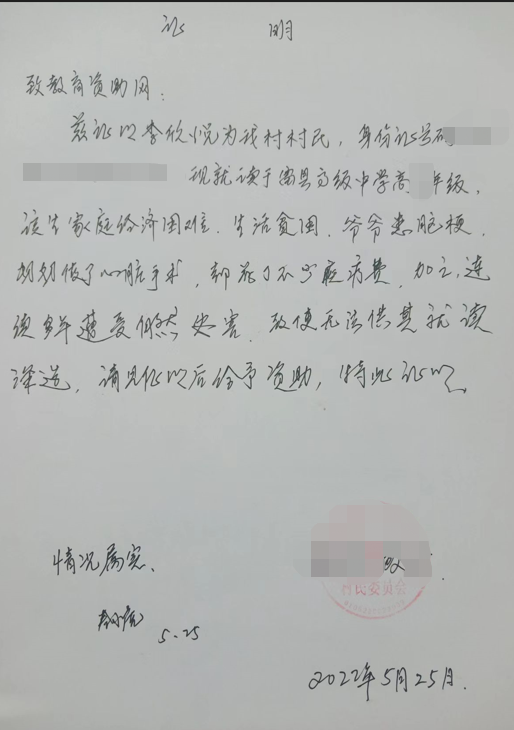 证 明
致教育资助网：
兹证明李欣悦为我村村民，身份证号码
现就读于嵩县高级中学高 年级，
该生家庭经济困难．生活贫困．爷爷患脑梗，
奶奶做了心脏手术，却花了不少医药费．加之，连
续多年遭受自然灾害．致使无法供其就读
深造，请见证以后给予资助，特此证明
情况属实、
5.25
村民委员会
2022年5月25日．